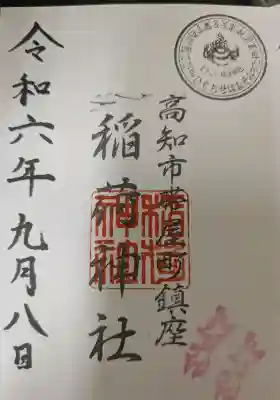 高知市帯屋町鎮座
稲荷神社
令和六年九月八日